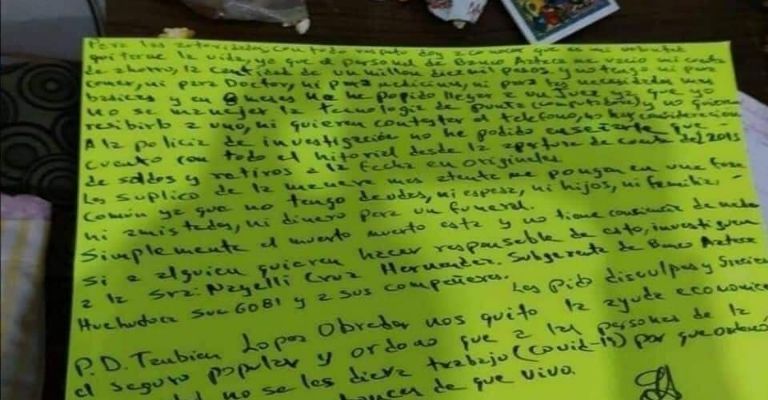 Para las autoridades, con todo respeto doy a conocer que es mi voluntad
quitarme la vida, ya que el personal de Banco Azteca me vacio mi cuenta
de ahorro, la cantidad de un millon diez mil pesos y no tengo ni para
comer, ni para Doctor, ni para medicina, ni para las necesidades mas
basicas y en 8 meses no he podido llegar a un juez ya que yo
no se manejar la tecnologia de punta (computadora) y no quieren
resibirlo a uno, ni quieren contestar el telefono, no hay consideracion
A la policia de investigación no he podido enseñarle que
cuento con todo el hitorial desde la apertura de cuenta del 2013
de saldos y retiros a la fecha en originales.
Les suplico de la manera mas atenta me pongan en una fosa
común ya que no tengo deudos, ni esposa, ni hijos, ni familia,
ni amistades, ni dinero para un funeral.
Simplemente el muerto muerto esta y no tiene continuar de nada
Si a alguien quieren hacer responsable de esto, investiguen
a la Sra: Nayelli Cruz Hernandez. Subgerente de Banco Azteca
Huehudoca Suc 6081 y a sus compañeros.
Les pido disculpas y Gracias
P.D. Tanbien Lopez Obrador nos quito la ayuda economica
el seguro popular y ordono que a las personas de la
no se les diera trabajo (covid-19) por que
de que vivo.